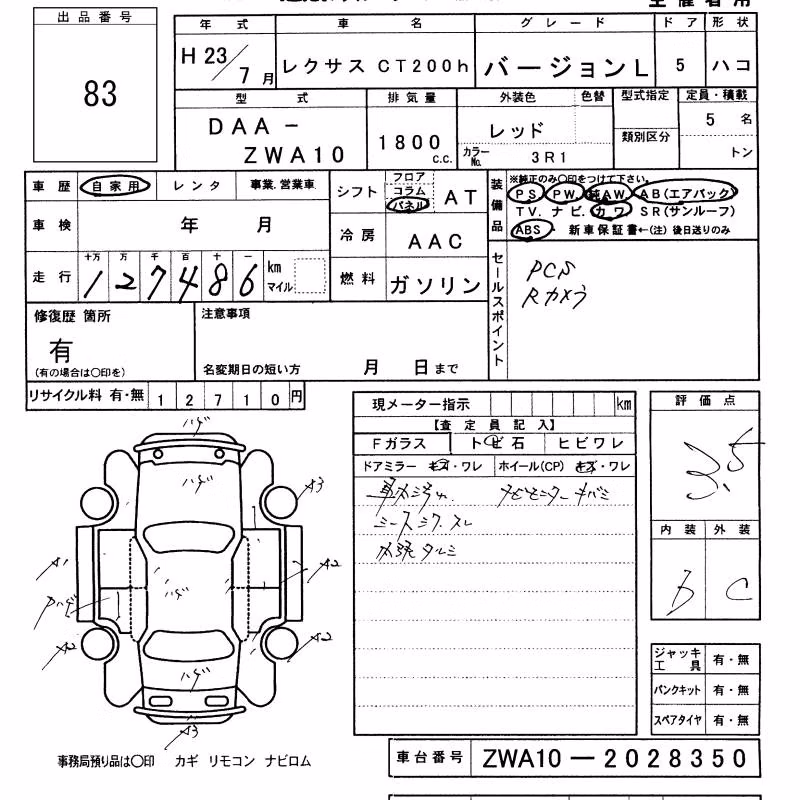 出品番号
83
年式 車名 グレード ドア 形状
H 23/7月 レクサス CT200h バージョンL 5 ハコ
型式 排気量 外装色 色替 型式指定 定員・積載
DAA-ZWA10 1800 c.c. レッド 類別区分 5 名
カラーNo. 3R1 トン
車歴 自家用 レンタ 事業.営業車
シフト フロア コラム パネル AT
装備品 ※純正のみ〇印をつけて下さい。
PS PW. 純AW. AB(エアバック)
TV. ナビ. カワ SR(サンルーフ)
ABS・新車保証書←(注)後日送りのみ
車検 年 月
冷房 AAC
走行 十万 万 千 百 十 一
127486 km マイル
燃料 ガソリン
セールスポイント
PCS
Rカメラ
修復歴 箇所
有
(有の場合は〇印を)
注意事項
名変期日の短い方 月 日まで
リサイクル料 有・無 12710円
現メーター指示 km
【査定員記入】
Fガラス トビ石 ヒビワレ
ドアミラー キズ・ワレ ホイール(CP) キズ・ワレ
車内汚れ ナビモニターキバミ
シースシワ.スレ
内張タルミ
評価点
3.5
内装 外装
b C
ハゲ
ハゲ
A3
A1
ハゲ
A2
A2
A2
ハゲ
A3
ジャッキ工具 有・無
パンクキット 有・無
スペアタイヤ 有・無
事務局預り品は〇印 カギ リモコン ナビロム
車台番号 ZWA10-2028350